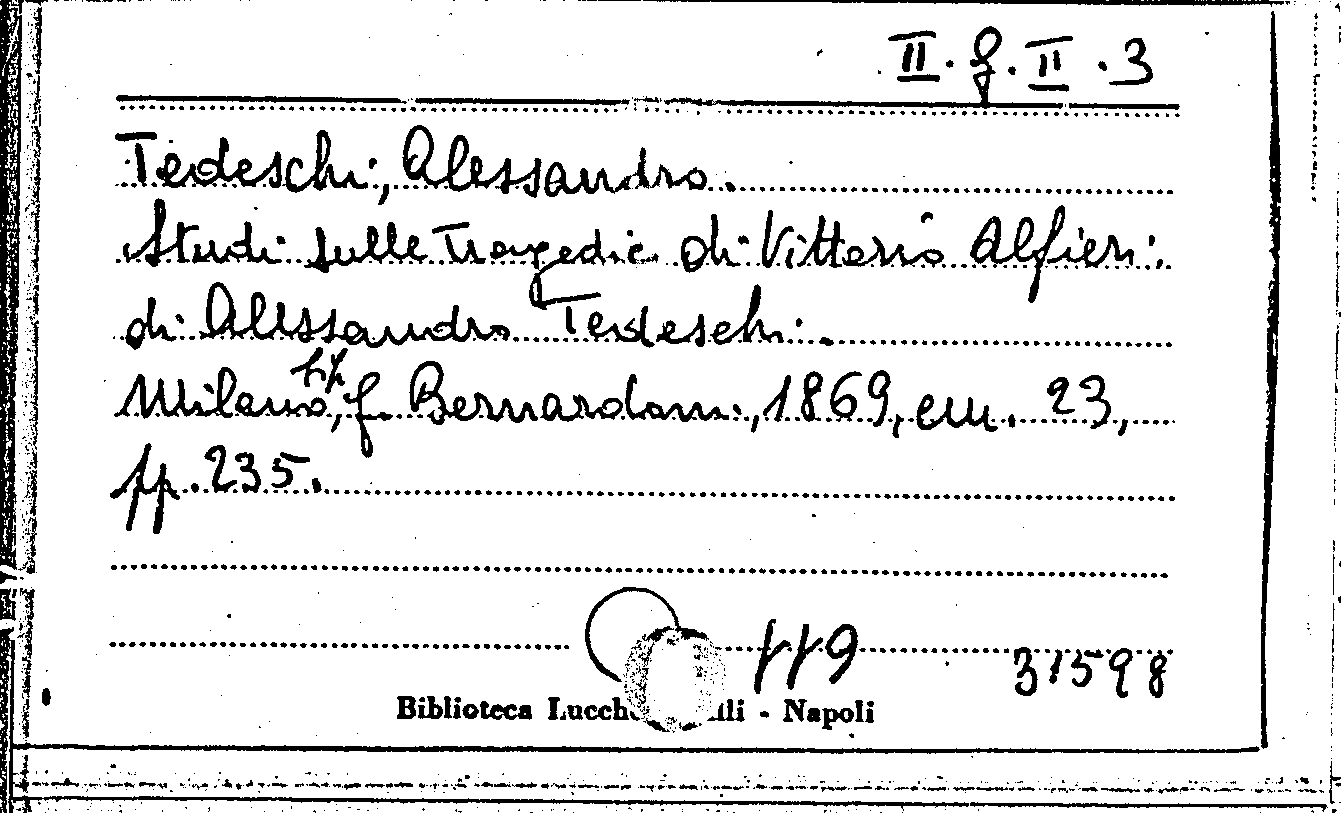 II. f. II. 3
Tedeschi, Alessandro.
Studi sulle Tragedie di Vittorio Alfieri
di Alessandro Tedeschi.
Milano, f. Bernardoni, 1869, cm. 23,
pp. 235.
119 31598
Biblioteca - Napoli